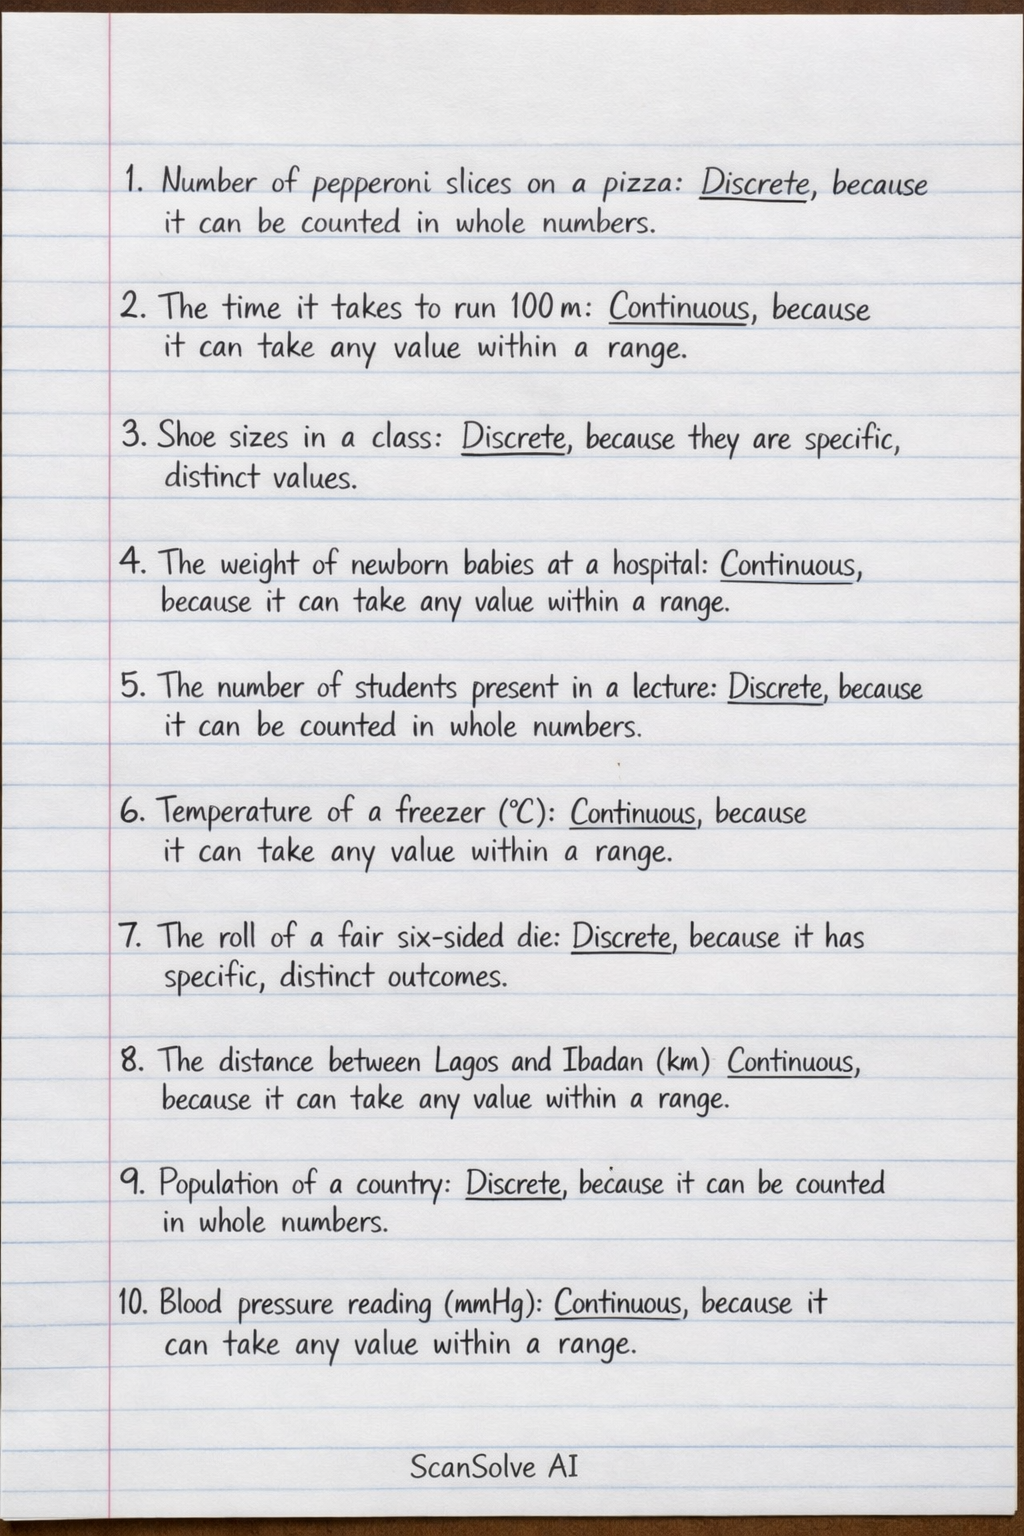 1. Number of pepperoni slices on a pizza: Discrete, because
it can be counted in whole numbers.
2. The time it takes to run 100 m: Continuous, because
it can take any value within a range.
3. Shoe sizes in a class: Discrete, because they are specific,
distinct values.
4. The weight of newborn babies at a hospital: Continuous,
because it can take any value within a range.
5. The number of students present in a lecture: Discrete, because
it can be counted in whole numbers.
6. Temperature of a freezer (°C): Continuous, because
it can take any value within a range.
7. The roll of a fair six-sided die: Discrete, because it has
specific, distinct outcomes.
8. The distance between Lagos and Ibadan (km) Continuous,
because it can take any value within a range.
9. Population of a country: Discrete, because it can be counted
in whole numbers.
10. Blood pressure reading (mmHg): Continuous, because it
can take any value within a range.
ScanSolve AI